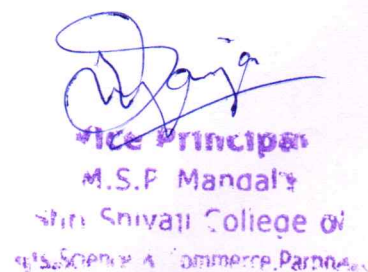 Vice Principal
M.S.P. Mandal's
Shri Shivaji College of
Arts, Science & Commerce, Parbhani